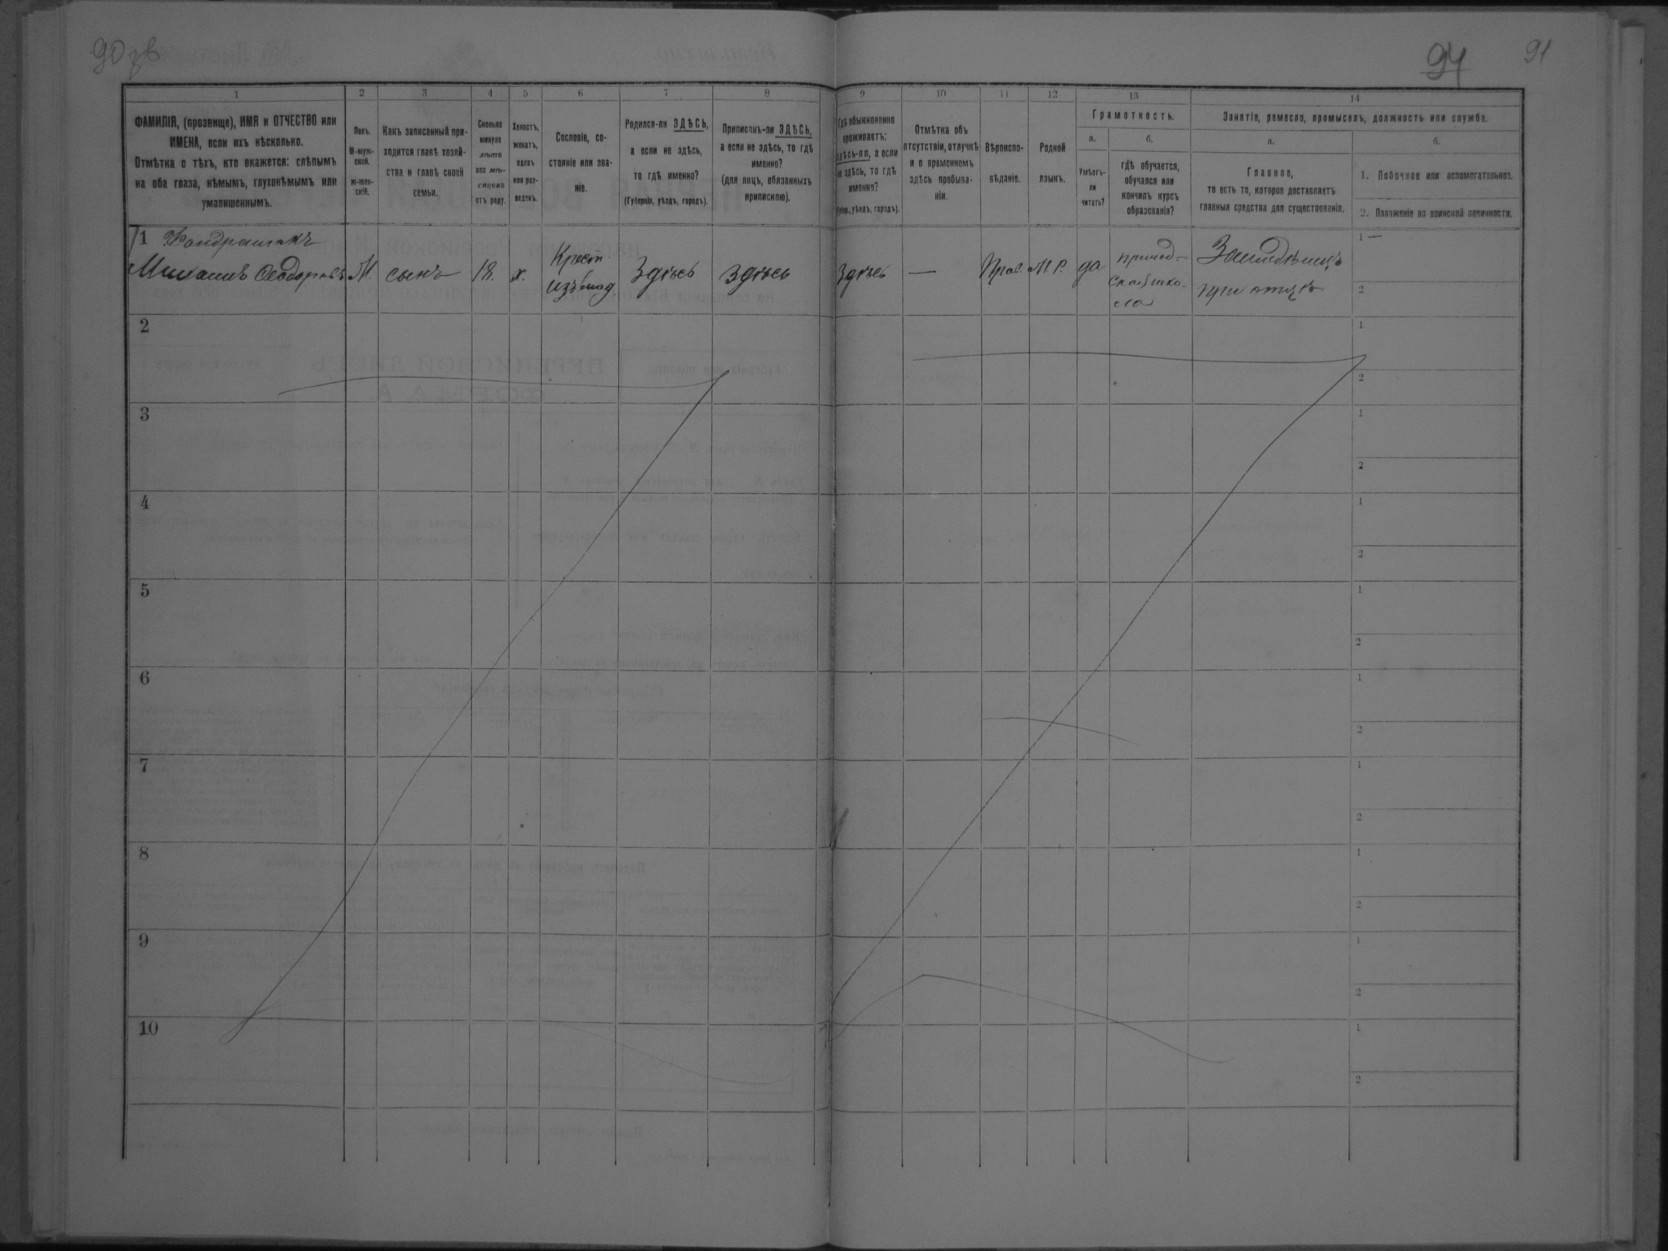 90 зв
94
91
1
2
3
4
5
6
7
8
9
10
11
12
13
14
ФАМИЛІЯ, (прозвище), ИМЯ и ОТЧЕСТВО или
ИМЕНА, если ихъ нѣсколько.
Отмѣтка о тѣхъ, кто окажется: слѣпымъ
на оба глаза, нѣмымъ, глухонѣмымъ или
умалишеннымъ.
Полъ.
М-муж-
ской.
ж-жен-
скій.
Какъ записанный при-
ходится главѣ хозяй-
ства и главѣ своей
семьи.
Сколько
минуло
лѣтъ
или мѣ-
сяцевъ
отъ роду.
Холостъ,
женатъ,
вдовъ
или раз-
веденъ.
Сословіе, со-
стояніе или зва-
ніе.
Родился-ли ЗДѢСЬ,
а если не здѣсь,
то гдѣ именно?
(Губернія, уѣздъ, городъ).
Приписанъ-ли ЗДѢСЬ,
а если не здѣсь, то гдѣ
именно?
(для лицъ, обязанныхъ
припискою).
Гдѣ обыкновенно
проживаетъ:
здѣсь-ли, а если
не здѣсь, то гдѣ
именно?
(Губер., уѣздъ, городъ).
Отмѣтка объ
отсутствіи, отлучкѣ
и о временномъ
здѣсь пребыва-
ніи.
Вѣроиспо-
вѣданіе.
Родной
языкъ.
Грамотность.
а.
Умѣетъ-
ли
читать?
б.
гдѣ обучается,
обучался или
кончилъ курсъ
образованія?
Занятіе, ремесло, промыселъ, должность или служба.
а.
Главное,
то есть то, которое доставляетъ
главныя средства для существованія.
б.
1. Побочное или вспомогательное.
2. Положеніе по воинской повинности.
1 Кондратюкъ
Михаилъ Ѳеодоровъ
М
сынъ
18.
х.
Крест
изъ влад
Здѣсь
здѣсь
Здѣсь
—
Прав.
М Р.
да
приход-
ская шко-
ла
Земледѣлецъ
при отцѣ
1 —
2
2
1
2
3
1
2
4
1
2
5
1
2
6
1
2
7
1
2
8
1
2
9
1
2
10
1
2